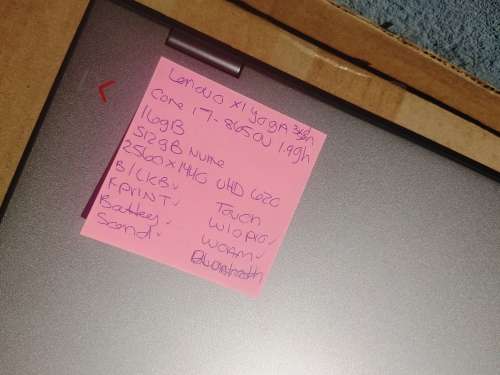 Lenovo X1 yoga 3gen
Core i7-8650U 1.9gh
16gB
512gB Nvme
2560x1440 UHD 620
B/LKB✓ Touch
F.PRINT✓ W10pro✓
Battery✓ WCAM✓
Sound✓ Bluetooth